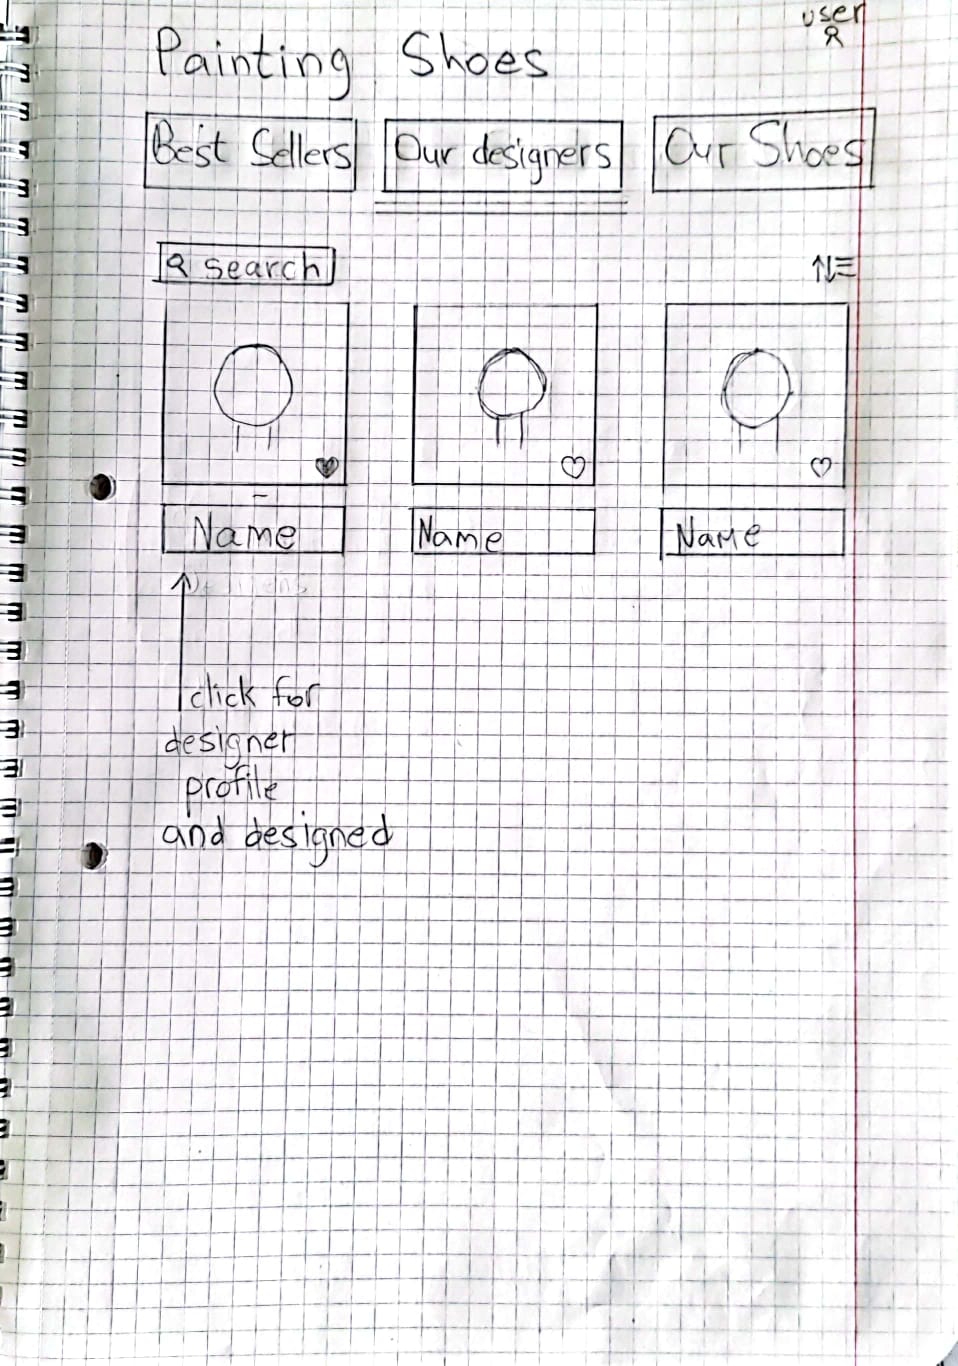 user
Painting Shoes
Best Sellers Our designers Our Shoes
search
Name Name Name
click for
designer
profile
and designed